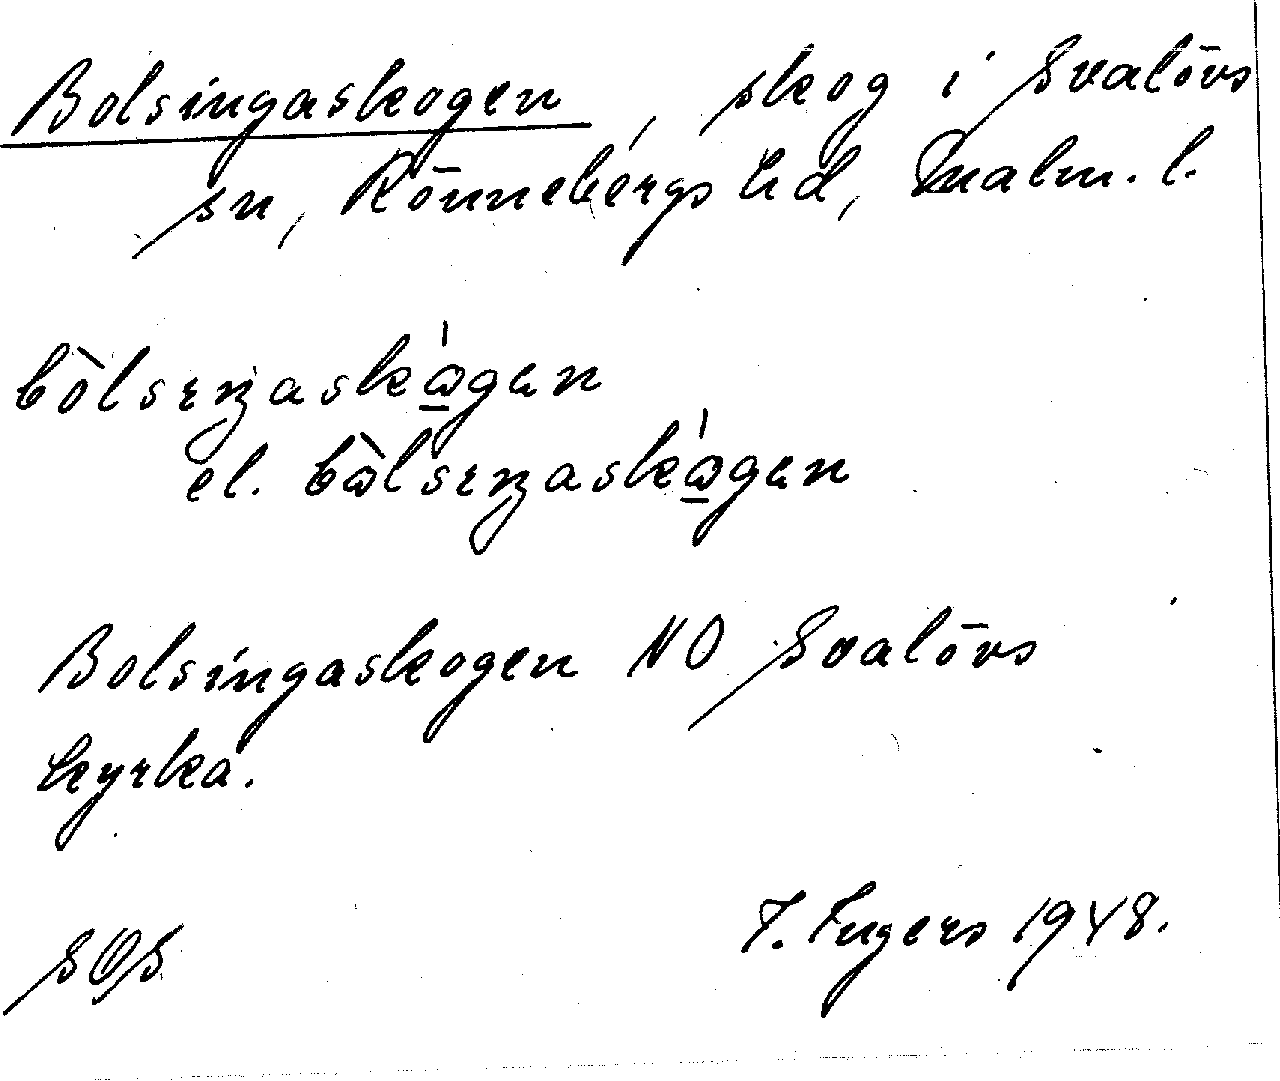 Bolsingaskogen, skog i Svalövs
sn, Rönnebergs hd, Malm. l.
bòlsɪŋaskǻgən
el. bὰlsɪŋaskǻgən
Bolsingaskogen NO Svalövs
kyrka.
SOS 1948.